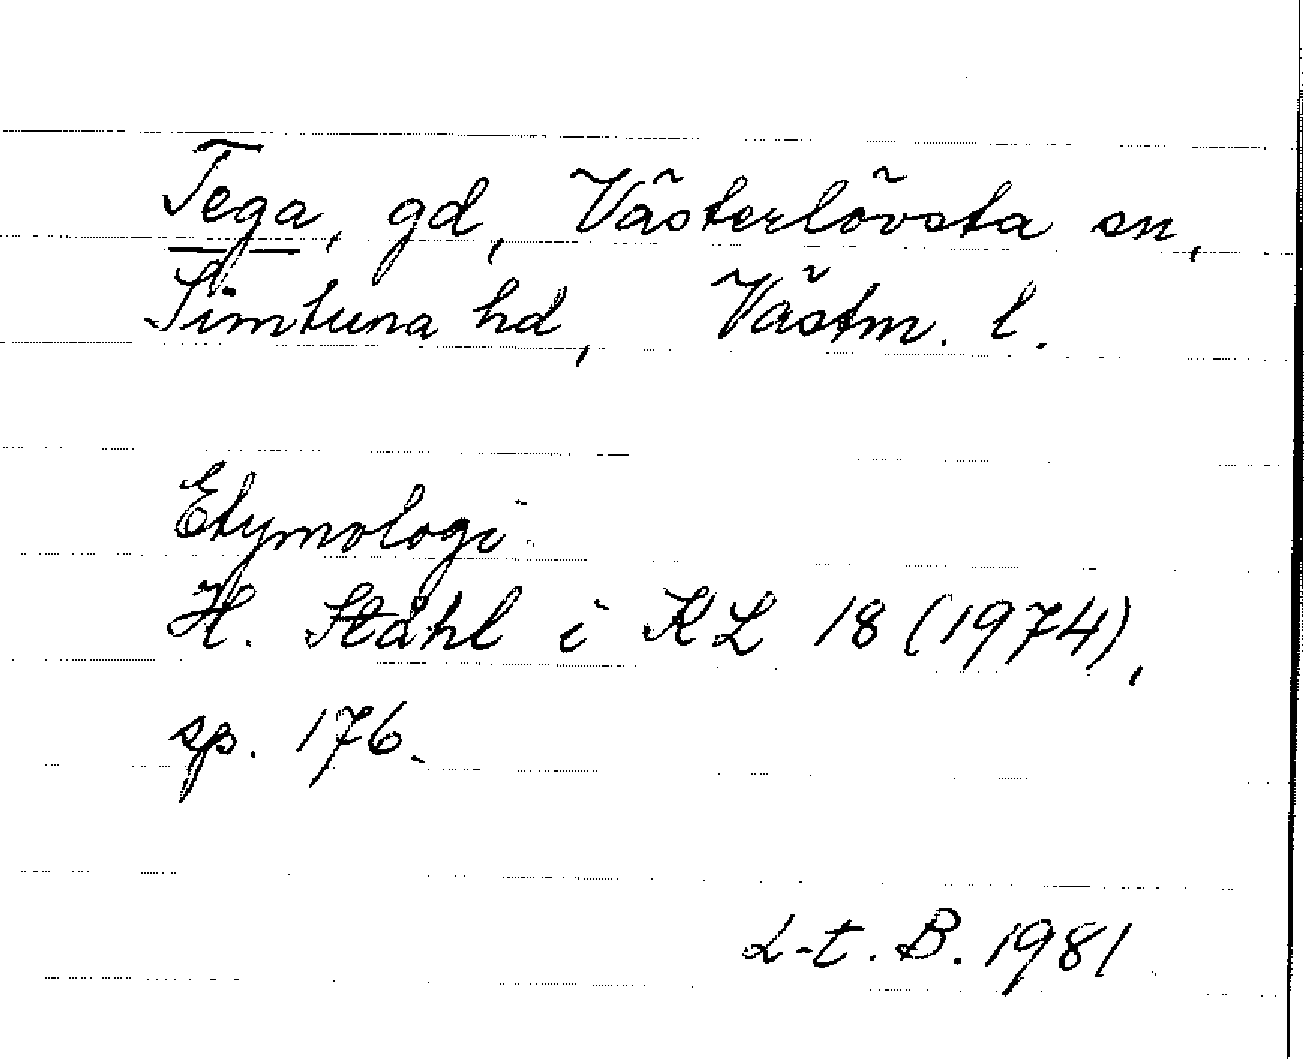 Tega, gd, Västerlövsta sn,
Simtuna hd, Västm. l.
Etymologi
H. Ståhl i KL 18 (1974),
sp. 176.
L-t. B. 1981